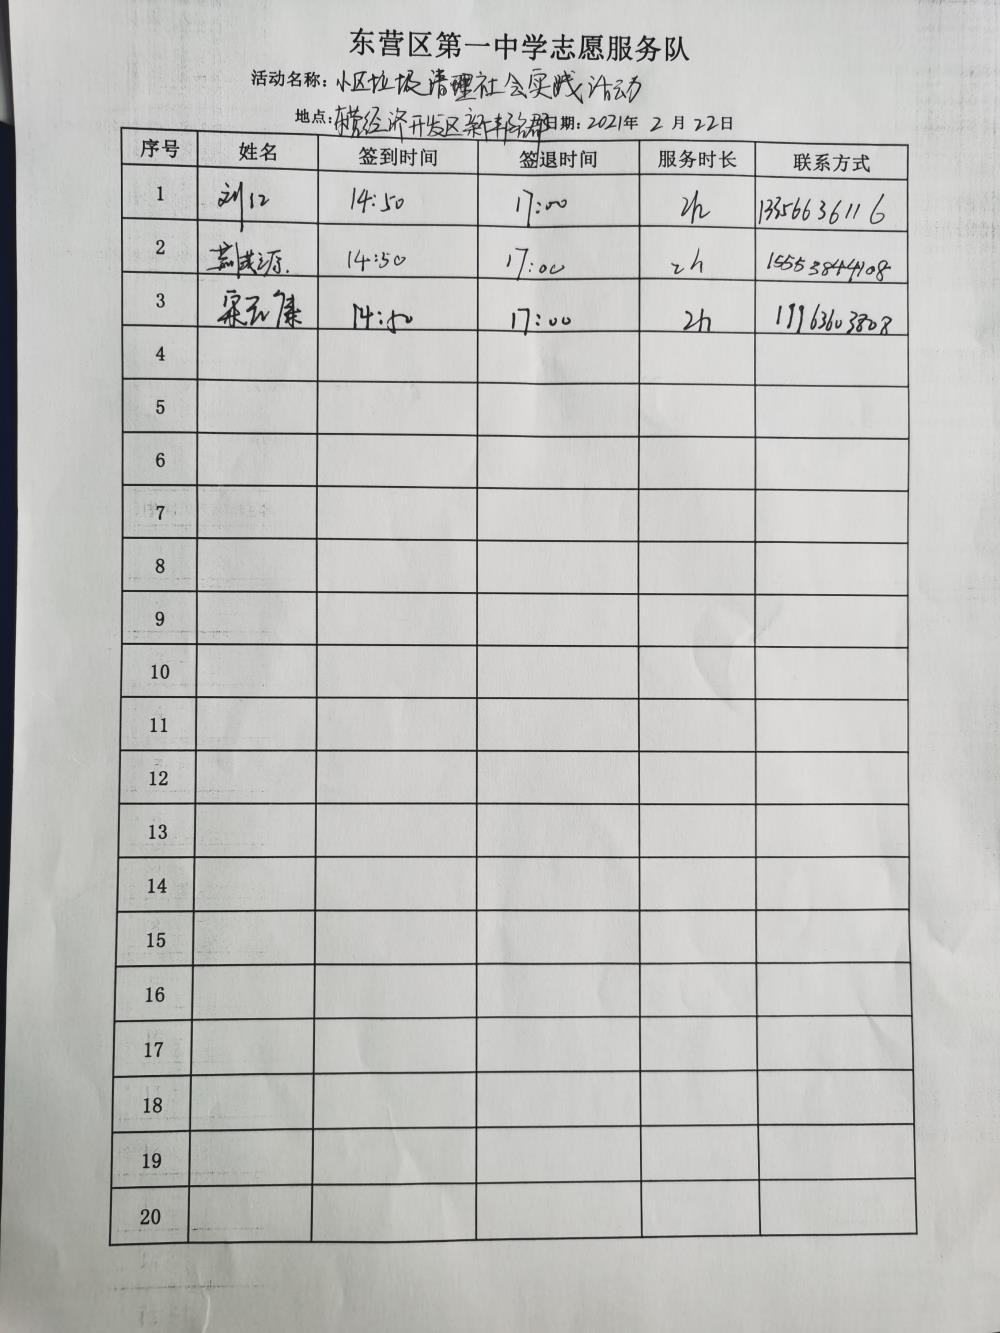 东营区第一中学志愿服务队
活动名称：小区垃圾清理社会实践活动
地点：东营经济开发区新 日期：2021年 2 月 22日
序号 姓名 签到时间 签退时间 服务时长 联系方式
1 刘江 14:50 17:00 2h 13356636116
2 14:50 17:00 2h 15553844108
3 14:50 17:00 2h 19963603808
4
5
6
7
8
9
10
11
12
13
14
15
16
17
18
19
20